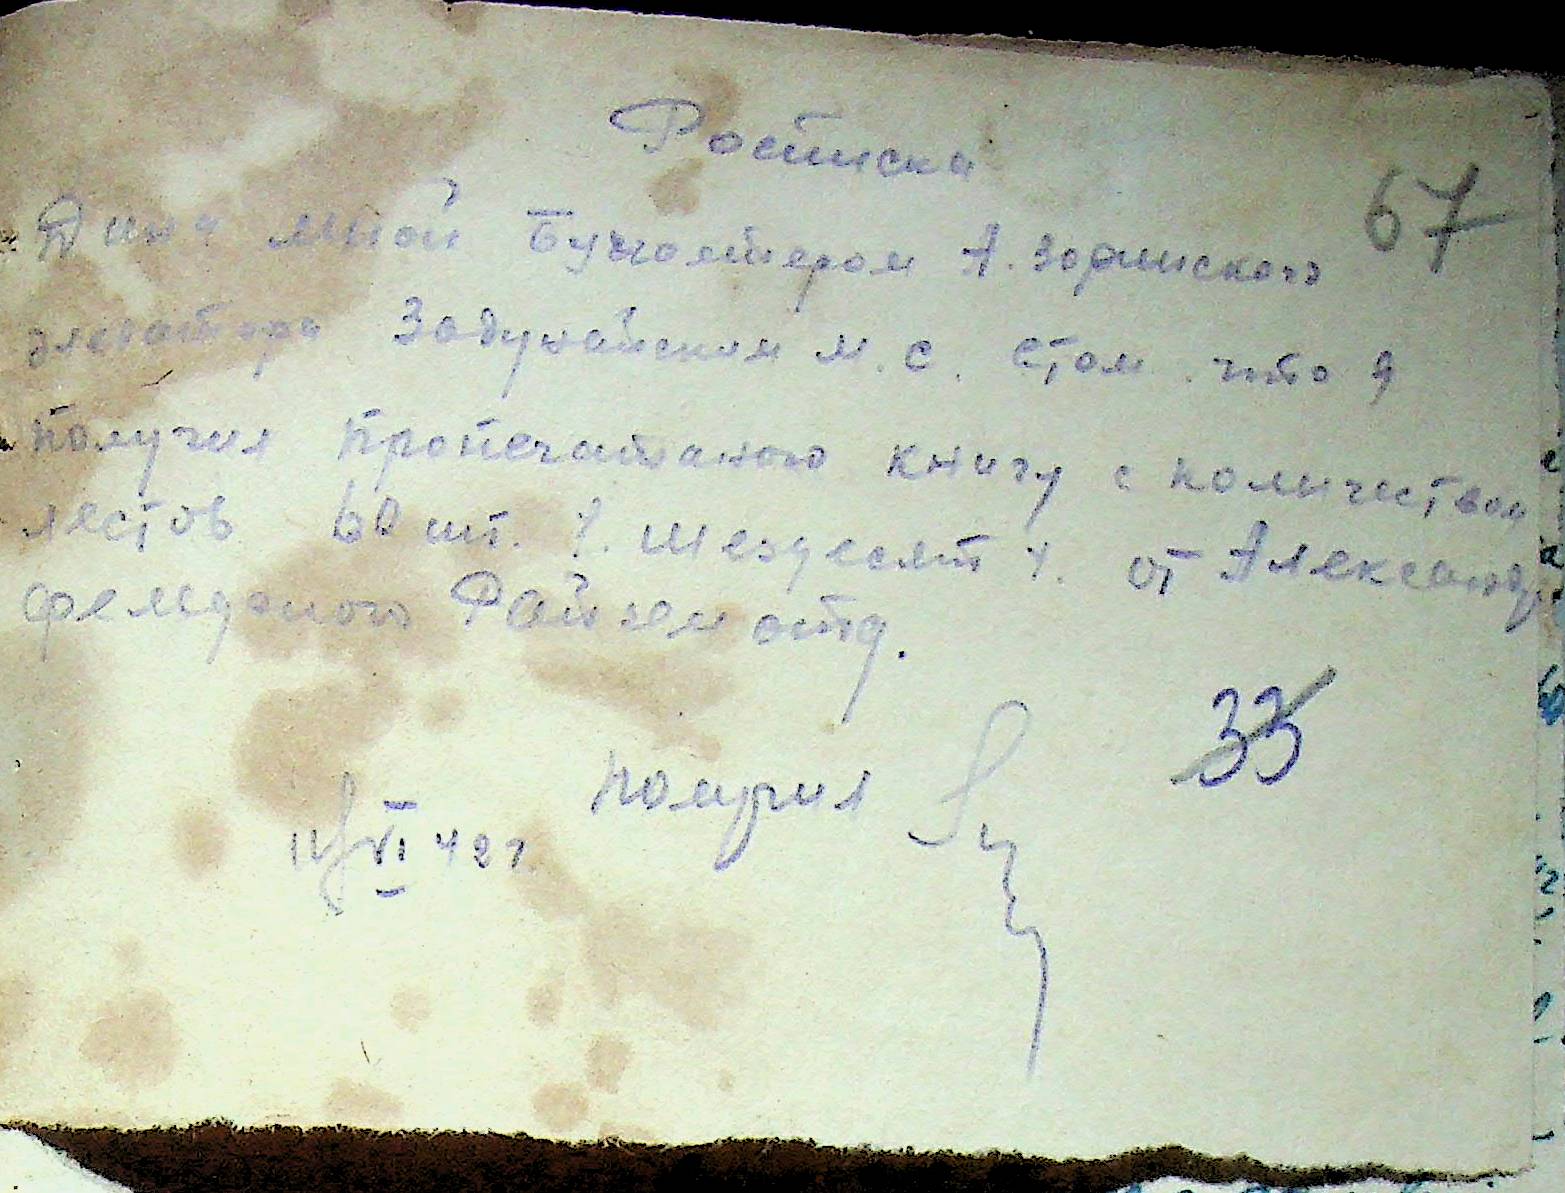 Росписка
67
Дина мной Бухгалтером А. зофинского
элеватора Задунайским м. с. стом что я
получил пропечатаного книгу с количеством
лестов 60 шт. /. Шездесят /. от Александр
фельдоного Райземотд.
33
получил
11/VI 42 г.